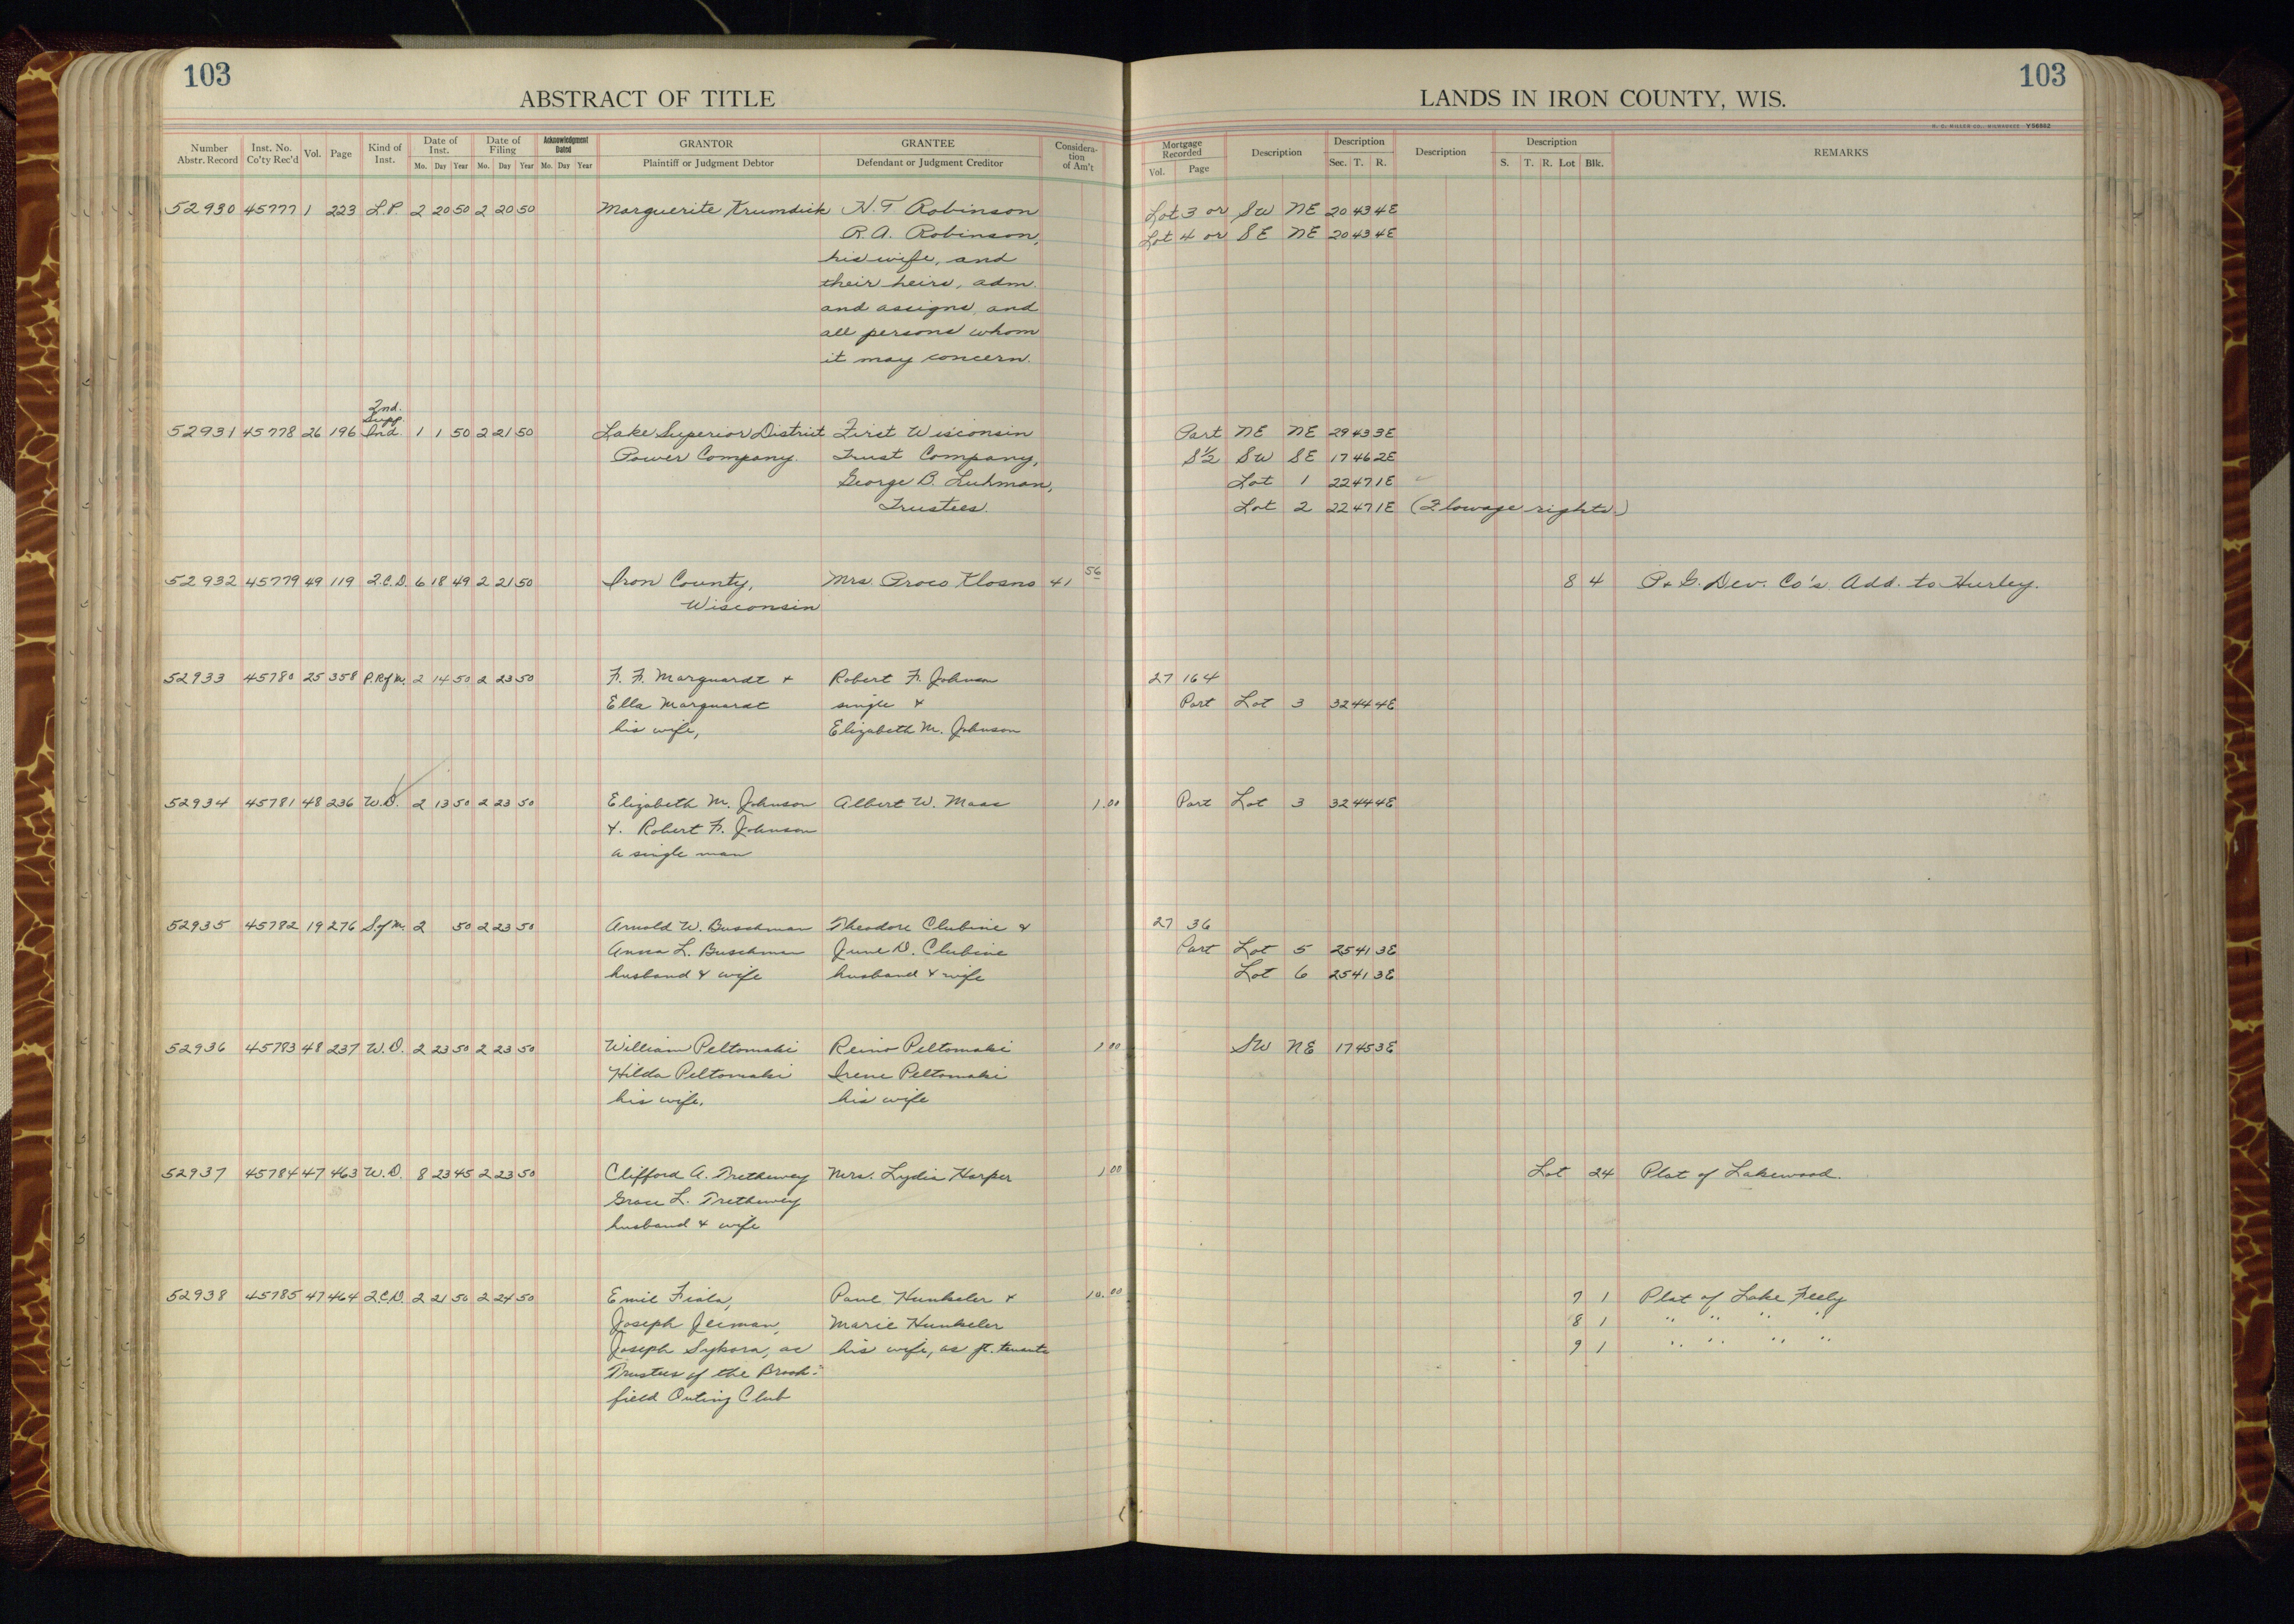 103
ABSTRACT OF TITLE
LANDS IN IRON COUNTY, WIS.
103
H. C. MILLER CO., MILWAUKEE V56882
Number Abstr. Record | Inst. No. Co'ty Rec'd | Vol. | Page | Kind of Inst. | Date of Inst. Mo. Day Year | Date of Filing Mo. Day Year | Acknowledgment Dated Mo. Day Year | GRANTOR Plaintiff or Judgment Debtor | GRANTEE Defendant or Judgment Creditor | Consideration of Am't | Mortgage Recorded Vol. Page | Description | Description Sec. T. R. | Description | Description S. T. R. Lot Blk. | REMARKS
52930 45777 1 223 L.P. 2 20 50 2 20 50 Marguerite Krumdick H. T. Robinson Lot 3 or SW NE 20 43 4E
R. A. Robinson, Lot 4 or SE NE 20 43 4E
his wife, and
their heirs, adm.
and assigns, and
all persons whom
it may concern.
2nd.
Supp.
52931 45778 26 196 Ind. 1 1 50 2 21 50 Lake Superior District First Wisconsin Part NE NE 29 43 3E
Power Company. Trust Company, S½ SW SE 17 46 2E
George B. Luhman, Lot 1 22 47 1E
Trustees. Lot 2 22 47 1E (Flowage rights.)
52932 45779 49 119 Q.C.D. 6 18 49 2 21 50 Iron County, Mrs. Proco Klosno 41 56 8 4 P. & G. Dev. Co's. Add. to Hurley.
Wisconsin
52933 45780 25 358 P.R of M. 2 14 50 2 23 50 F. F. Marquardt & Robert F. Johnson 27 164
Ella Marquardt single & Part Lot 3 32 44 4E
his wife, Elizabeth M. Johnson
52934 45781 48 236 W.D. 2 13 50 2 23 50 Elizabeth M. Johnson Albert W. Maas 1.00 Part Lot 3 32 44 4E
&. Robert F. Johnson
a single man
52935 45782 19 276 S.of M. 2 50 2 23 50 Arnold W. Buschman Theodore Clubine & 27 36
Anna L. Buschman June D. Clubine Part Lot 5 25 41 3E
husband & wife husband & wife Lot 6 25 41 3E
52936 45783 48 237 W.D. 2 23 50 2 23 50 William Peltomaki Reino Peltomaki 1.00 SW NE 17 45 3E
Hilda Peltomaki Irene Peltomaki
his wife. his wife
52937 45784 47 463 W.D. 8 23 45 2 23 50 Clifford A. Trethewey Mrs. Lydia Harper 1.00 Lot 24 Plat of Lakewood.
Grace L. Trethewey
husband & wife
52938 45785 47 464 Q.C.D. 2 21 50 2 24 50 Emil Fiala, Paul Hunkeler & 10.00 7 1 Plat of Lake Feely
Joseph Jecman, Marie Hunkeler 8 1 " " " "
Joseph Sykora, as his wife, as jt. tenants 9 1 " " " "
Trustees of the Brook-
field Outing Club